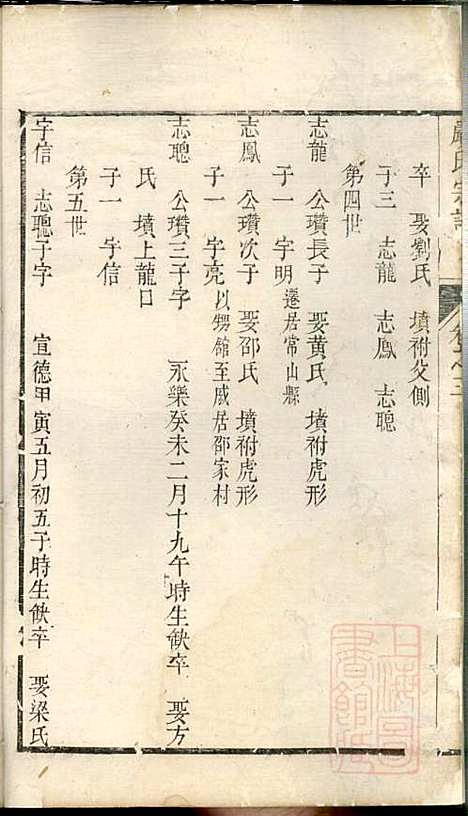 嚴氏宗譜 卷之三
卒 娶劉氏 墳祔父側
子三 志龍 志鳳 志聰
第四世
志龍 公瓚長子 娶黃氏 墳祔虎形
子一 字明 遷居常山縣
志鳳 公瓚次子 娶邵氏 墳祔虎形
子一 字亮 以甥館至戚居邵家村
志聰 公瓚三子字 永樂癸未二月十九午時生缺卒 娶方
氏 墳上龍口
子一 字信
第五世
字信 志聰子字 宣德甲寅五月初五子時生缺卒 娶梁氏
上海圖書館藏